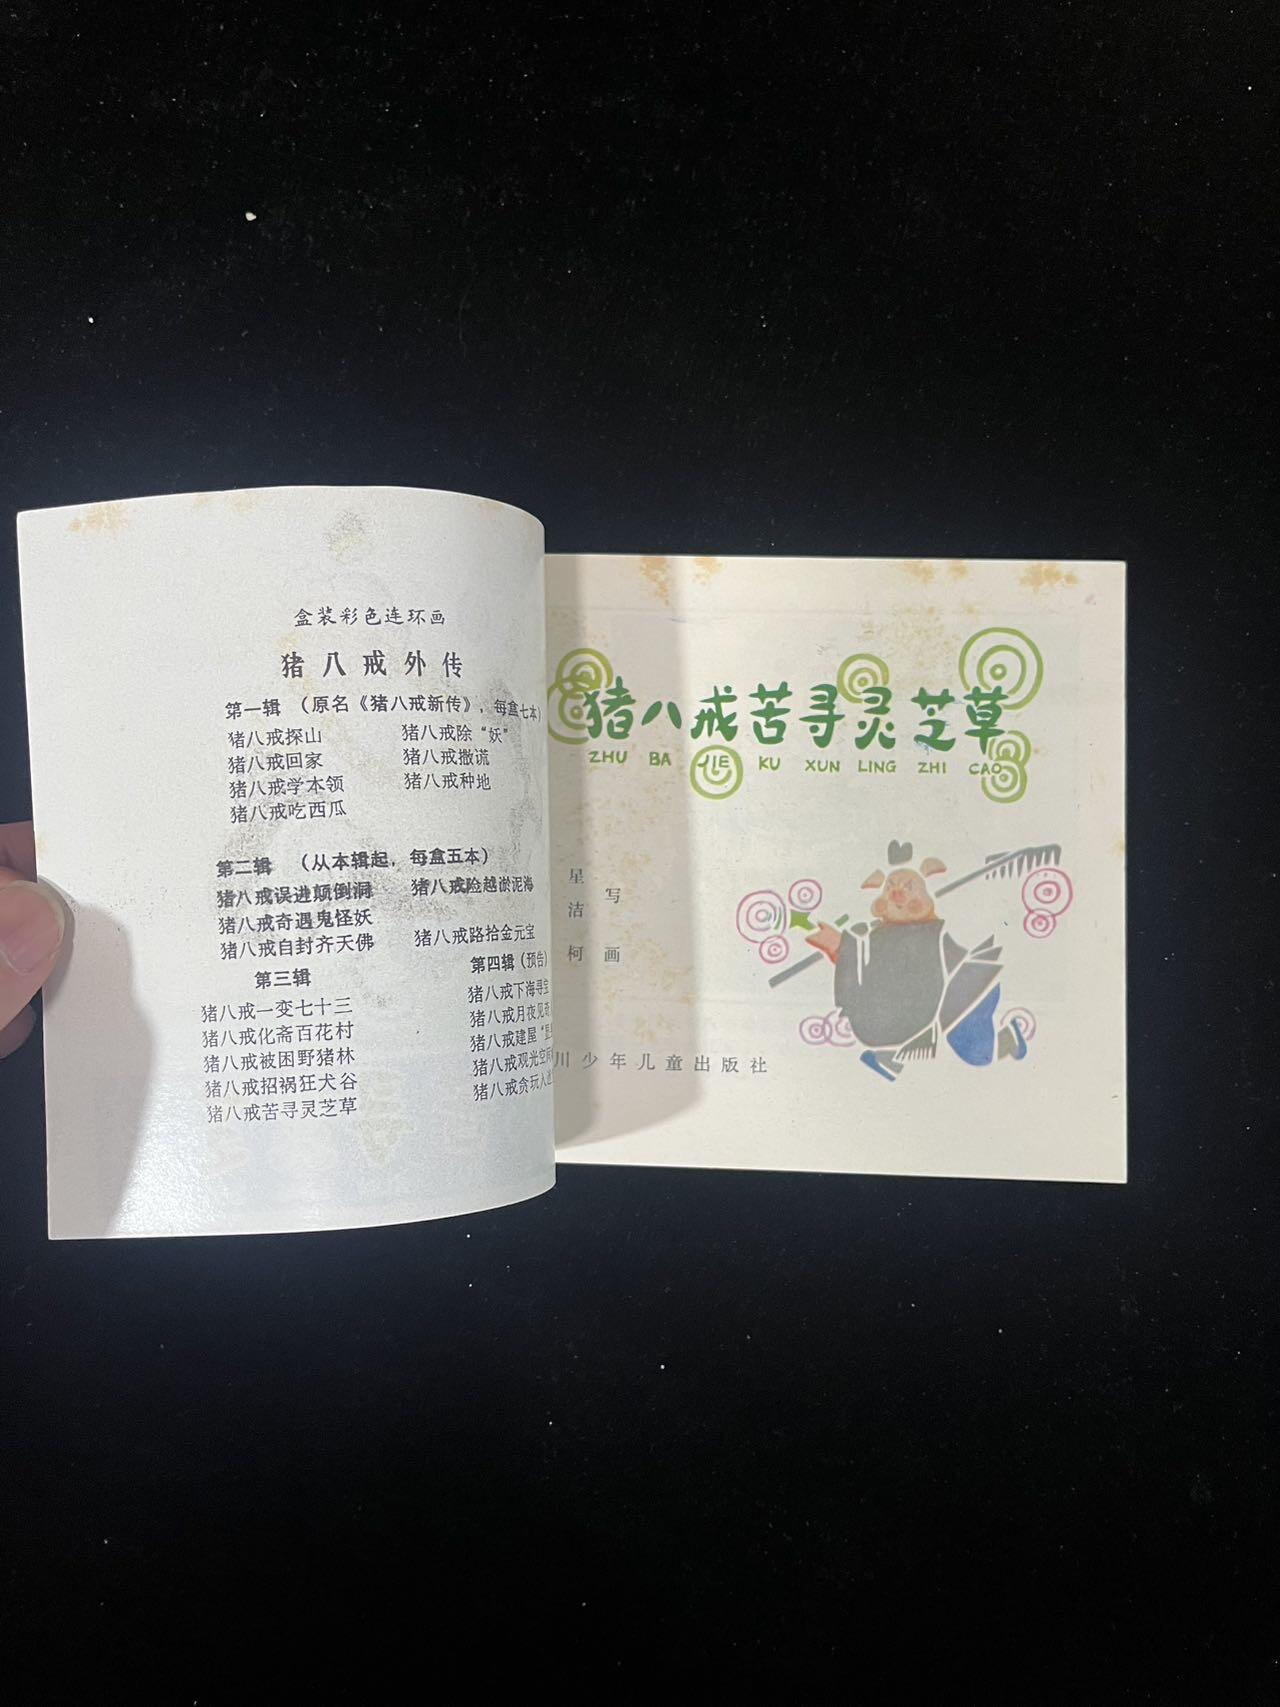 盒装彩色连环画
猪八戒外传
第一辑 （原名《猪八戒新传》，每盒七本）
猪八戒探山 猪八戒除“妖”
猪八戒回家 猪八戒撒谎
猪八戒学本领 猪八戒种地
猪八戒吃西瓜
第二辑 （从本辑起，每盒五本）
猪八戒误进颠倒洞 猪八戒险越淤泥海
猪八戒奇遇鬼怪妖
猪八戒自封齐天佛 猪八戒路拾金元宝
第三辑
猪八戒一变七十三
猪八戒化斋百花村
猪八戒被困野猪林
猪八戒招祸狂犬谷
猪八戒苦寻灵芝草
第四辑（预告）
猪八戒下海寻宝
猪八戒月夜见奇
猪八戒建屋“
猪八戒观光空
猪八戒贪玩入
猪八戒苦寻灵芝草
ZHU BA JIE KU XUN LING ZHI CAO
星
洁 写
柯 画
川少年儿童出版社